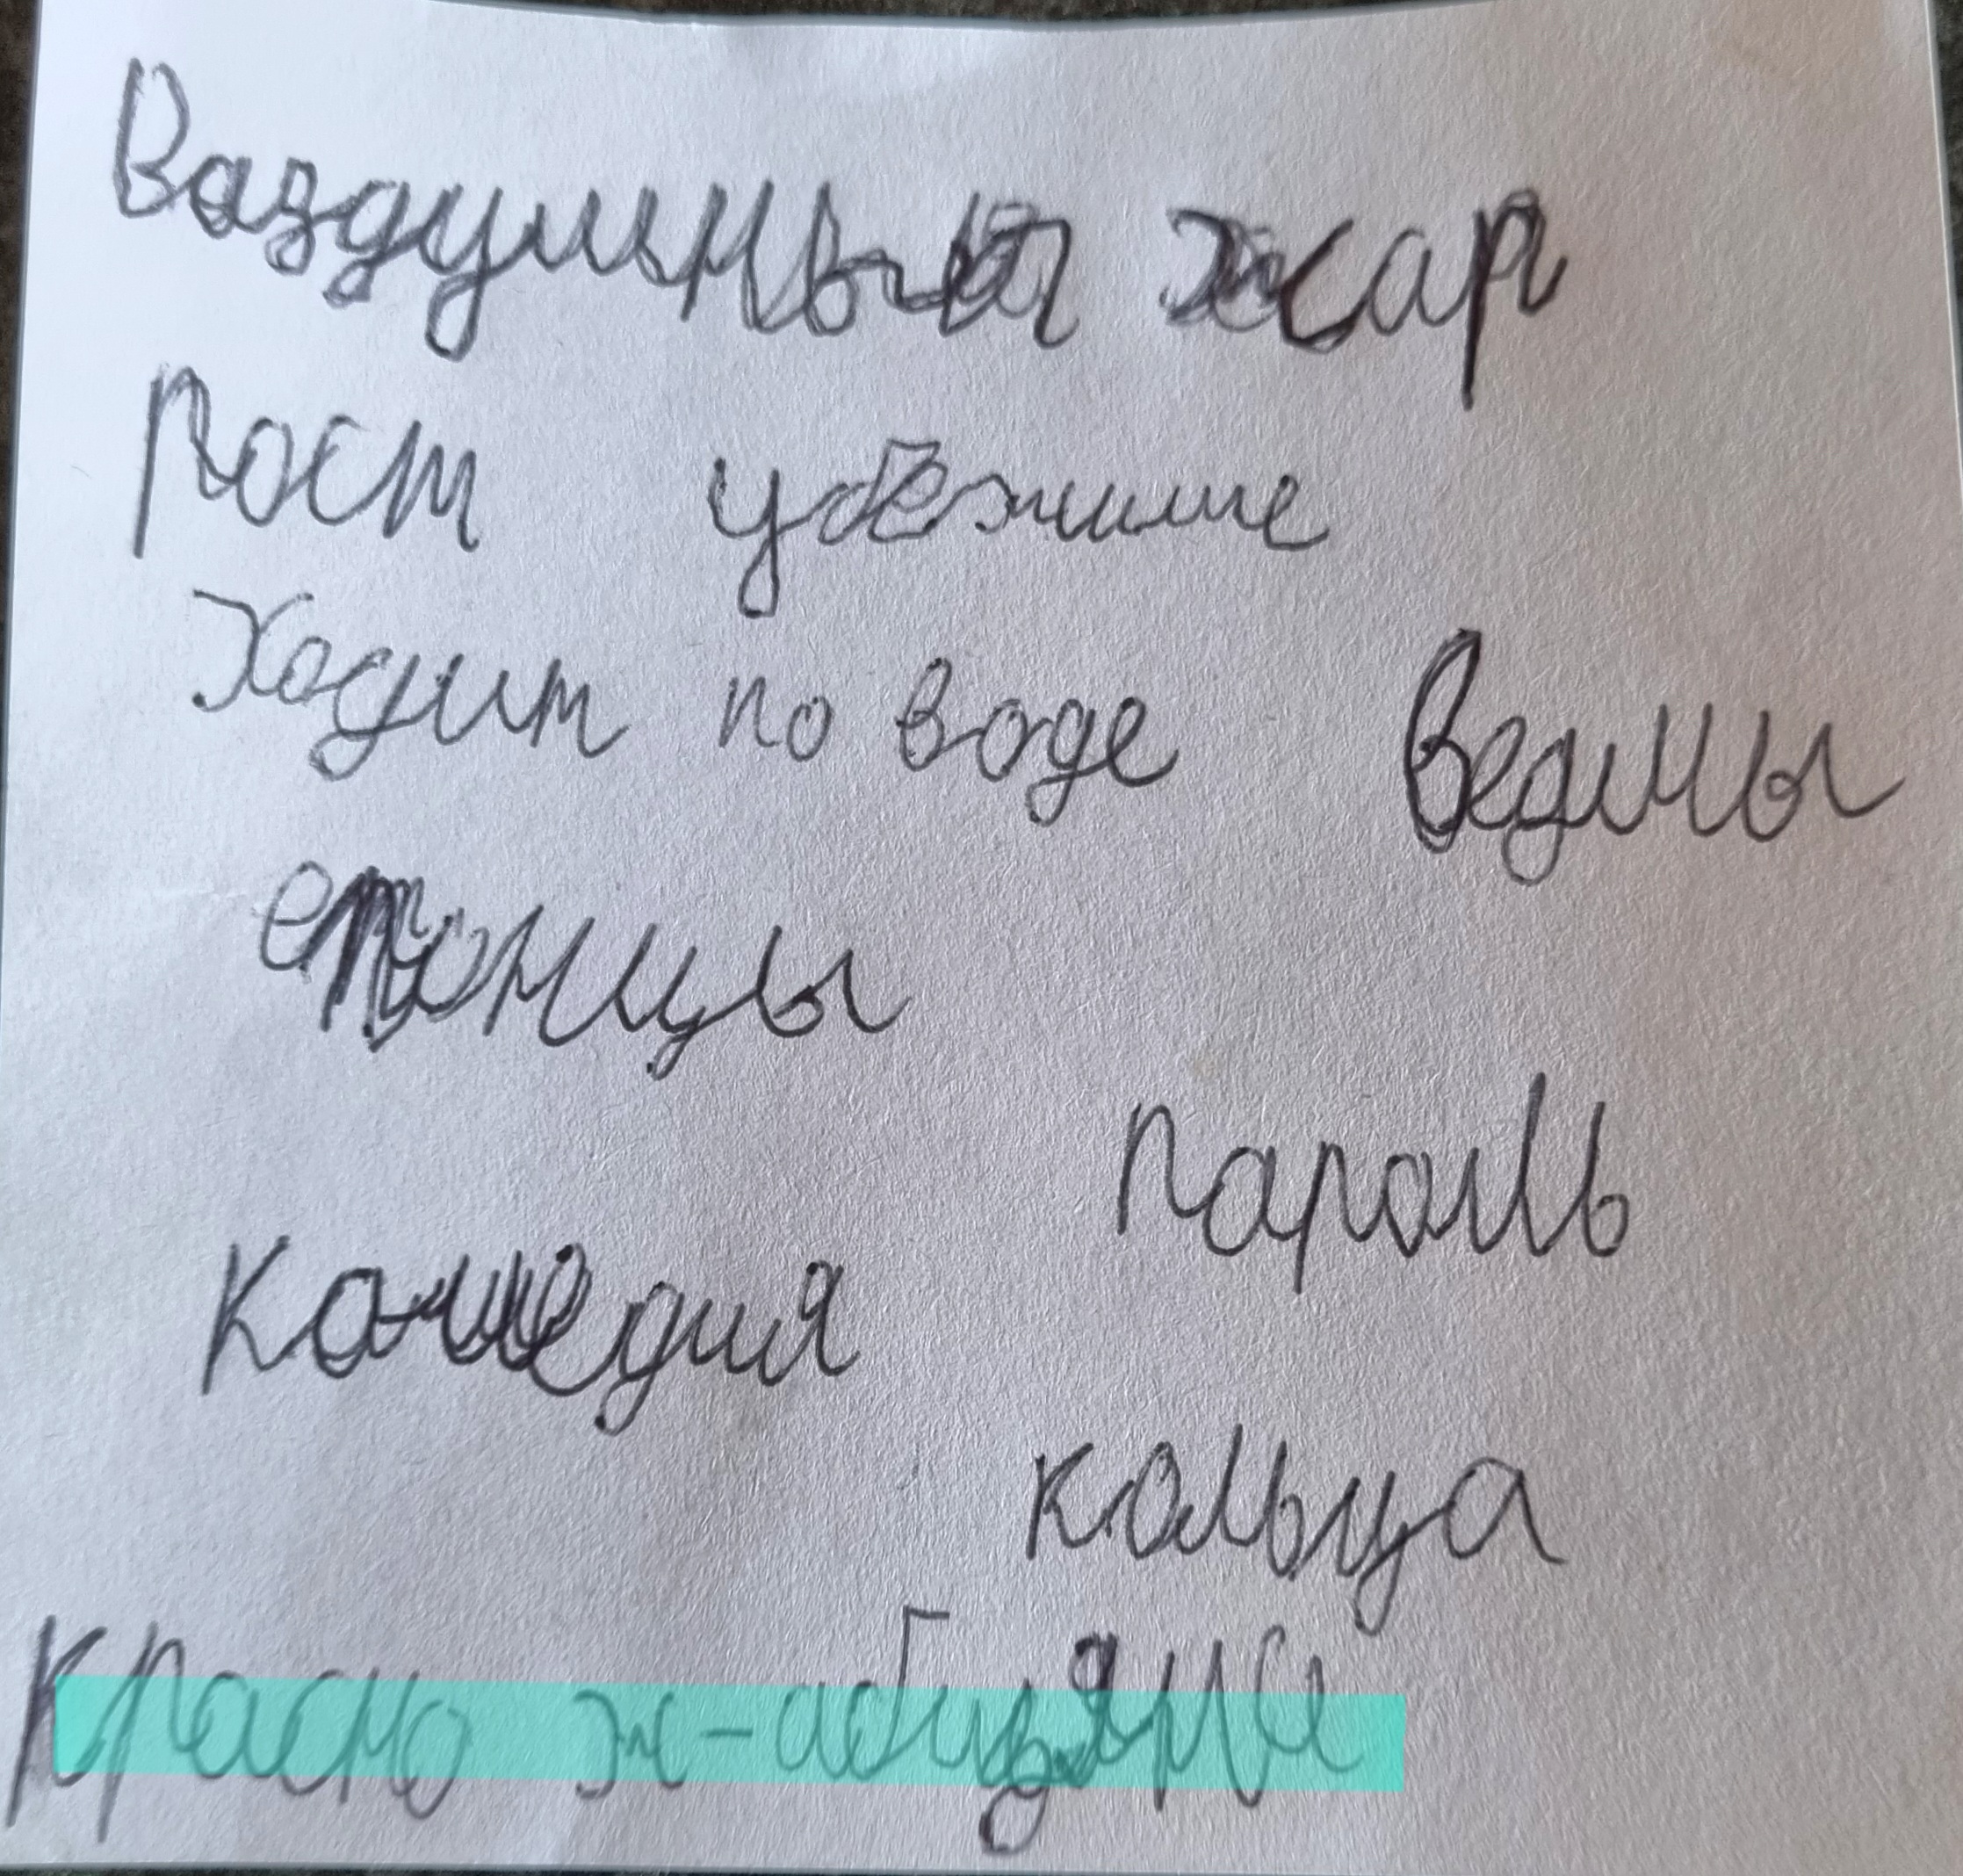 Ваздушный жар
Рост убежише
Ходит по воде ведмы
епонцы
пароль
Комедия
кольца
Красно ж-абузяны